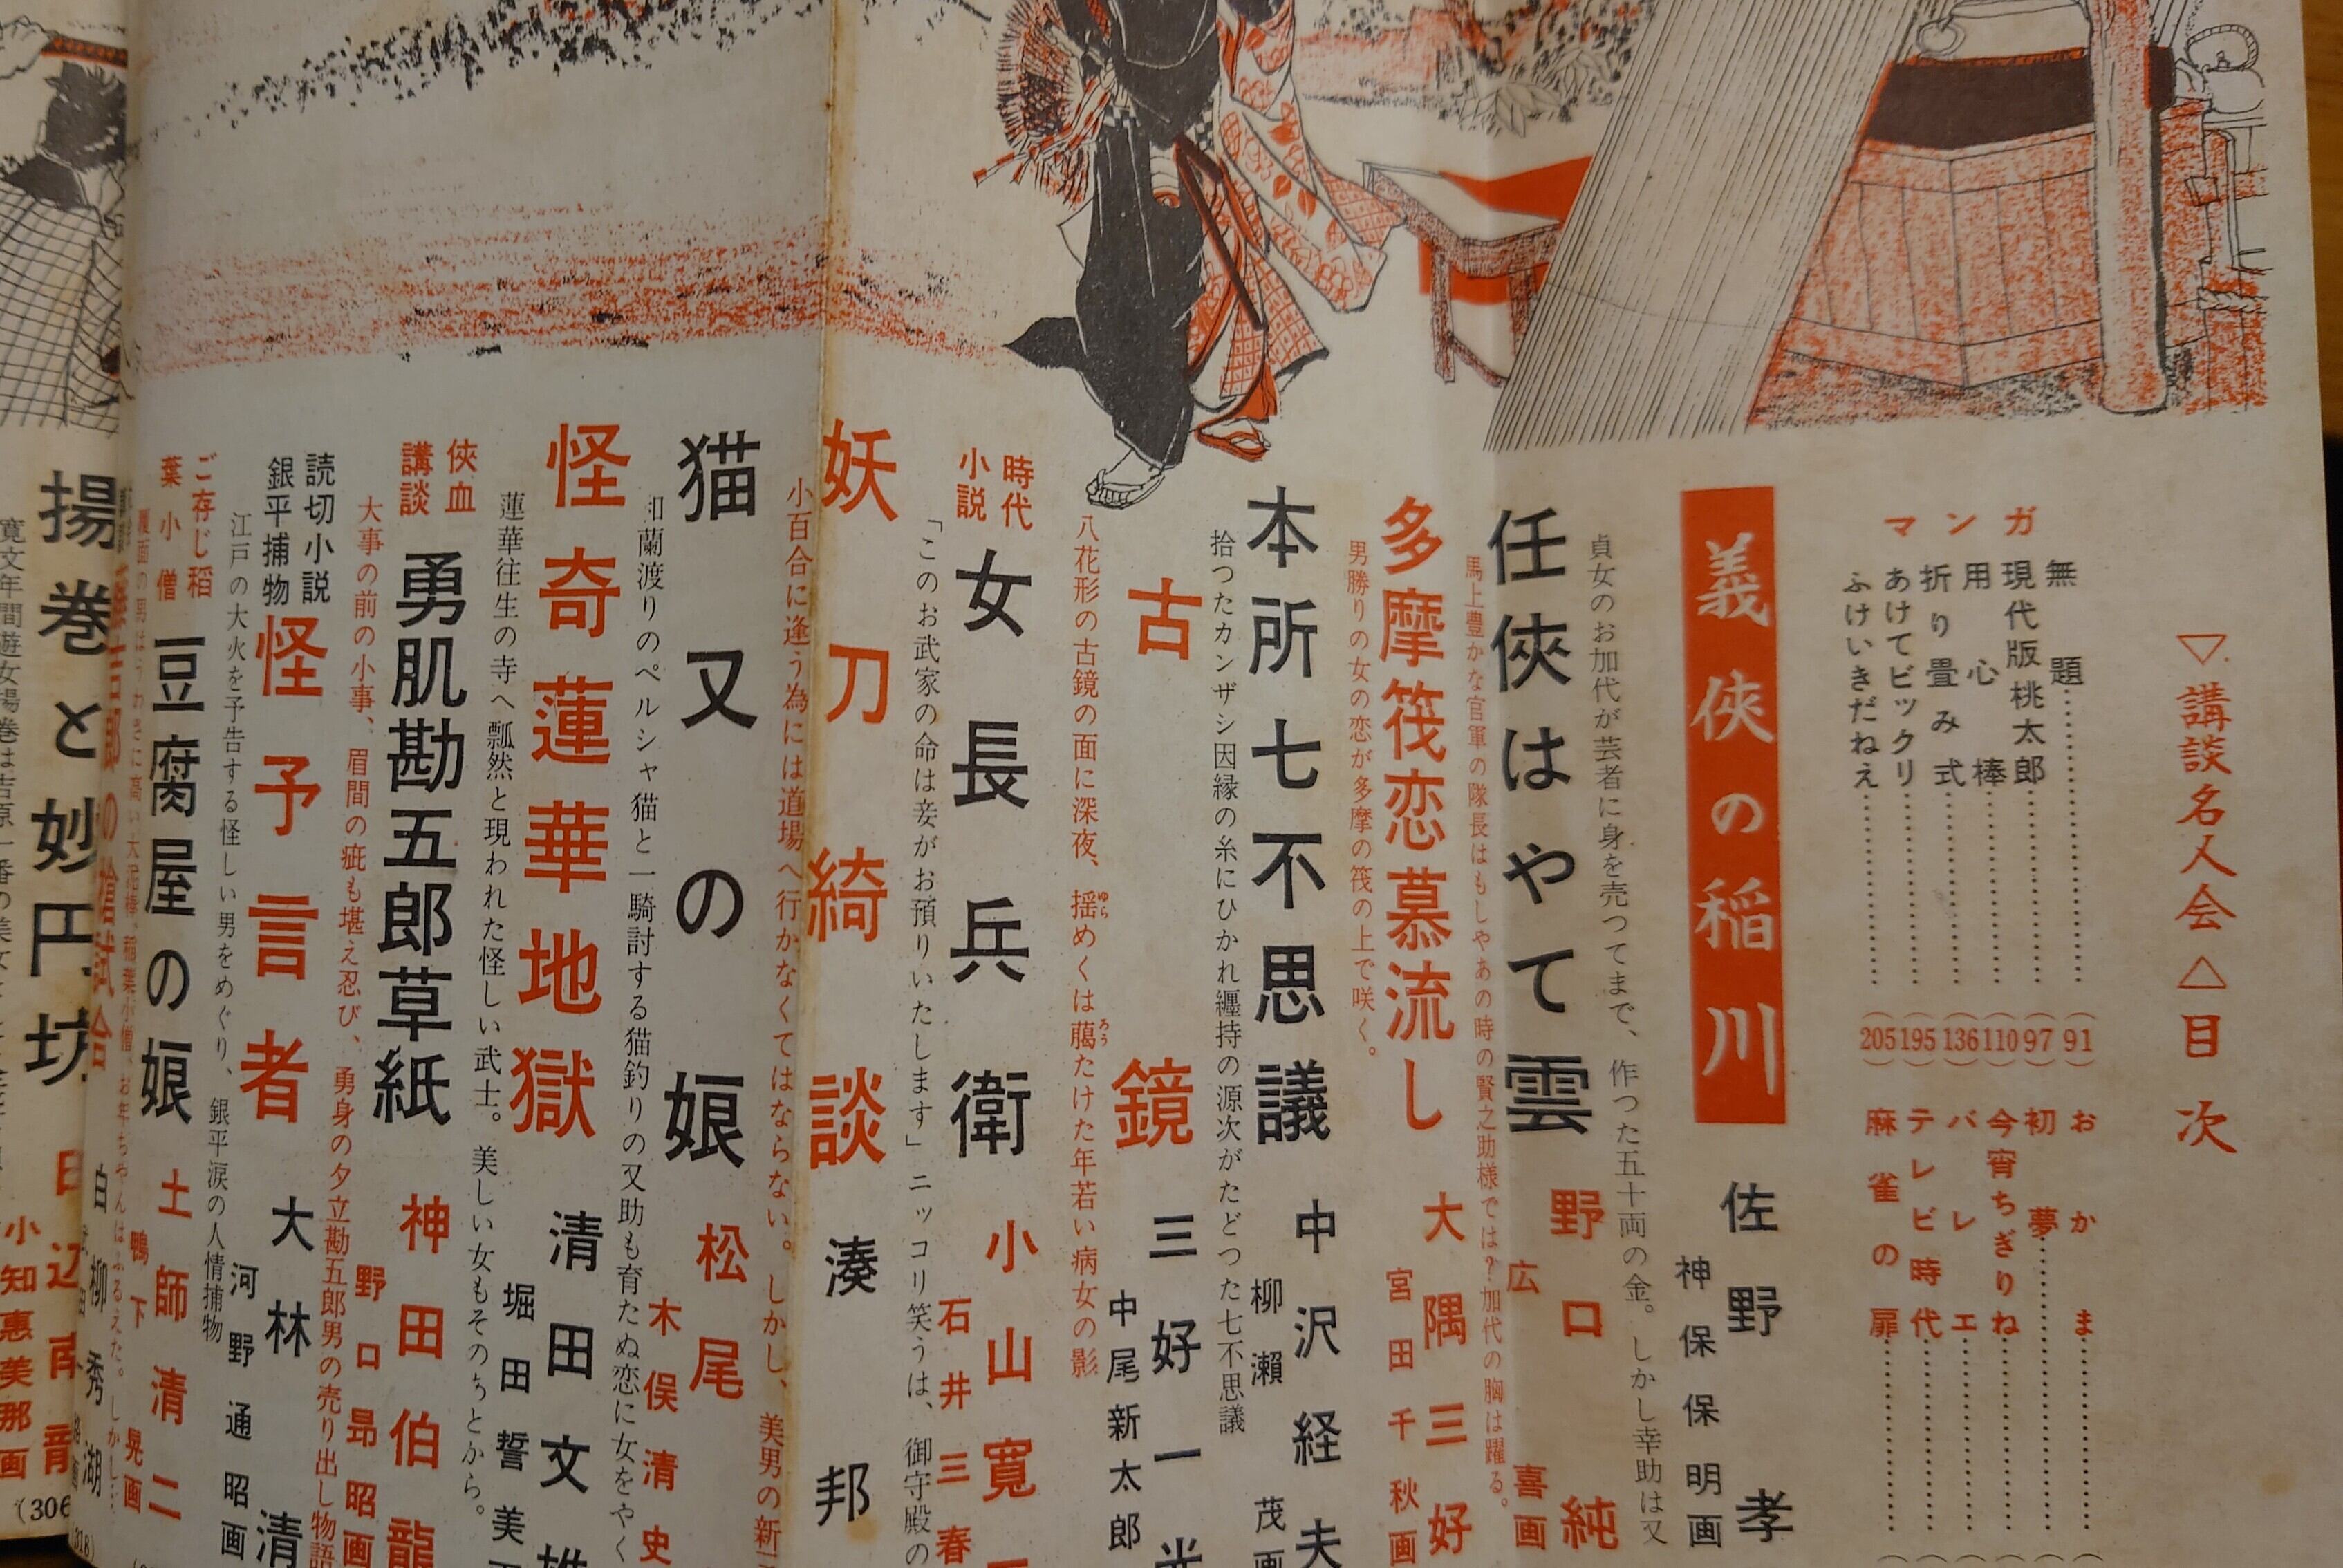 ▽講談名人会△目次
マンガ
無題…………(91)
現代版桃太郎…………(97)
用心棒…………(110)
折り畳み式…………(136)
あけてビックリ…………(195)
ふけいきだねえ…………(205)
おかま…………
初夢…………
今宵ちぎりね…………
バレエ…………
テレビ時代…………
麻雀の扉…………
義侠の稲川
佐野孝
神保保明画
貞女のお加代が芸者に身を売つてまで、作つた五十両の金。しかし幸助は又
任侠はやて雲
野口純
広喜画
馬上豊かな官軍の隊長はもしやあの時の賢之助様では?加代の胸は躍る。
多摩筏恋慕流し
大隅三好
宮田千秋画
男勝りの女の恋が多摩の筏の上で咲く。
本所七不思議
中沢経夫
柳瀬茂画
拾つたカンザシ因縁の糸にひかれ纒持の源次がたどつた七不思議
古鏡
三好一光
中尾新太郎
八花形の古鏡の面に深夜、揺めくは﨟たけた年若い病女の影
時代小説
女長兵衛
小山寛一
石井三春
「このお武家の命は妾がお預りいたします」ニッコリ笑うは、御守殿の
妖刀綺談
湊邦
小百合に逢う為には道場へ行かなくてはならない。しかし、美男の新
猫又の娘
松尾
木俣清史
蘭渡りのペルシャ猫と一騎討する猫釣りの又助も育たぬ恋に女をやく
怪奇蓮華地獄
清田文
堀田誓美
蓮華往生の寺へ瓢然と現われた怪しい武士。美しい女もそのうとから。
侠血講談
勇肌勘五郎草紙
神田伯龍
野口昻昭画
大事の前の小事、眉間の疵も堪え忍び、勇身の夕立勘五郎男の売り出し物語
読切小説
銀平捕物
怪予言者
大林清
河野通昭画
江戸の大火を予告する怪しい男をめぐり、銀平涙の人情捕物
ご存じ稲葉小僧
豆腐屋の娘
土師清二
鴨下晃画
覆面の男はうわさに高い大泥棒、稲葉小僧、お年ちやんはふるえた。しかし…
の槍試合
白柳秀湖
(318)
揚巻と妙円坊
小知恵美那画
寛文年間遊女揚巻は吉原一番の美女
(306